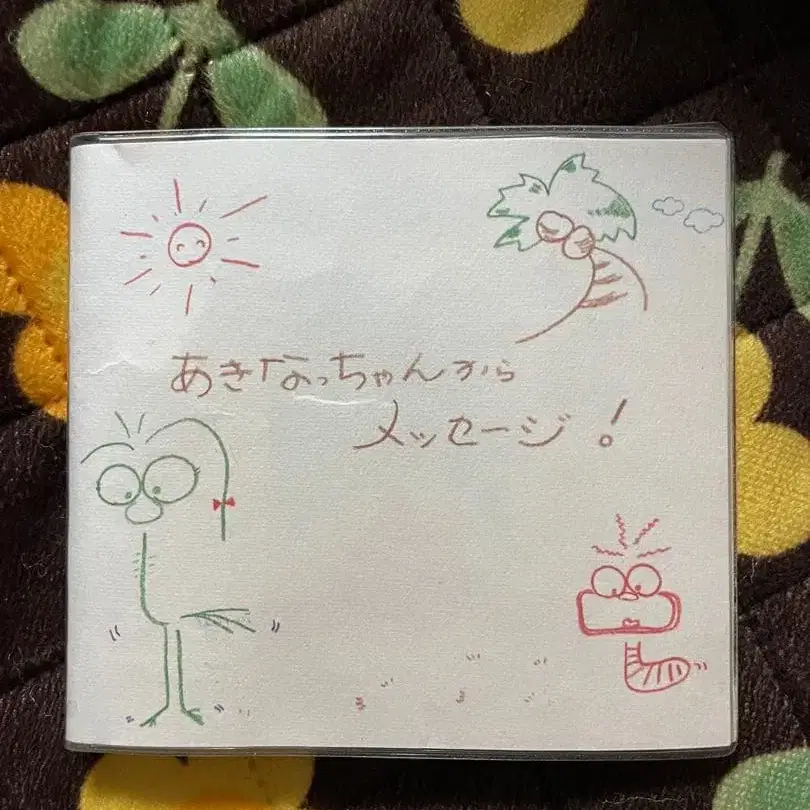 あきなっちゃんから
メッセージ!